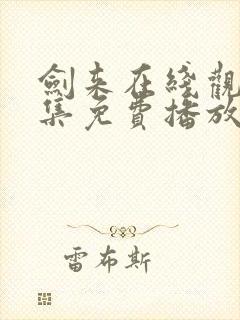 劍來在綫觀
集免費播放
雷布斯